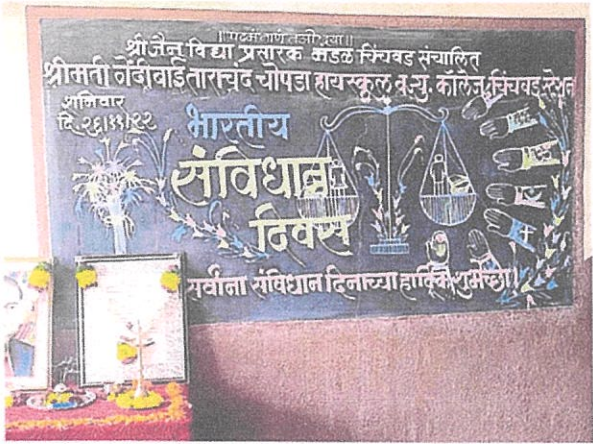 ॥पढमं णाणं तओ दया॥
श्री जैन विद्या प्रसारक मंडळ चिंचवड संचालित
श्रीमती नोंदीबाई ताराचंद चोपडा हायस्कूल व ज्यु. कॉलेज, चिंचवड स्टेशन
शनिवार
दि. २६/११/२२
भारतीय
संविधान
दिवस
सर्वांना संविधान दिनाच्या हार्दिक शुभेच्छा!